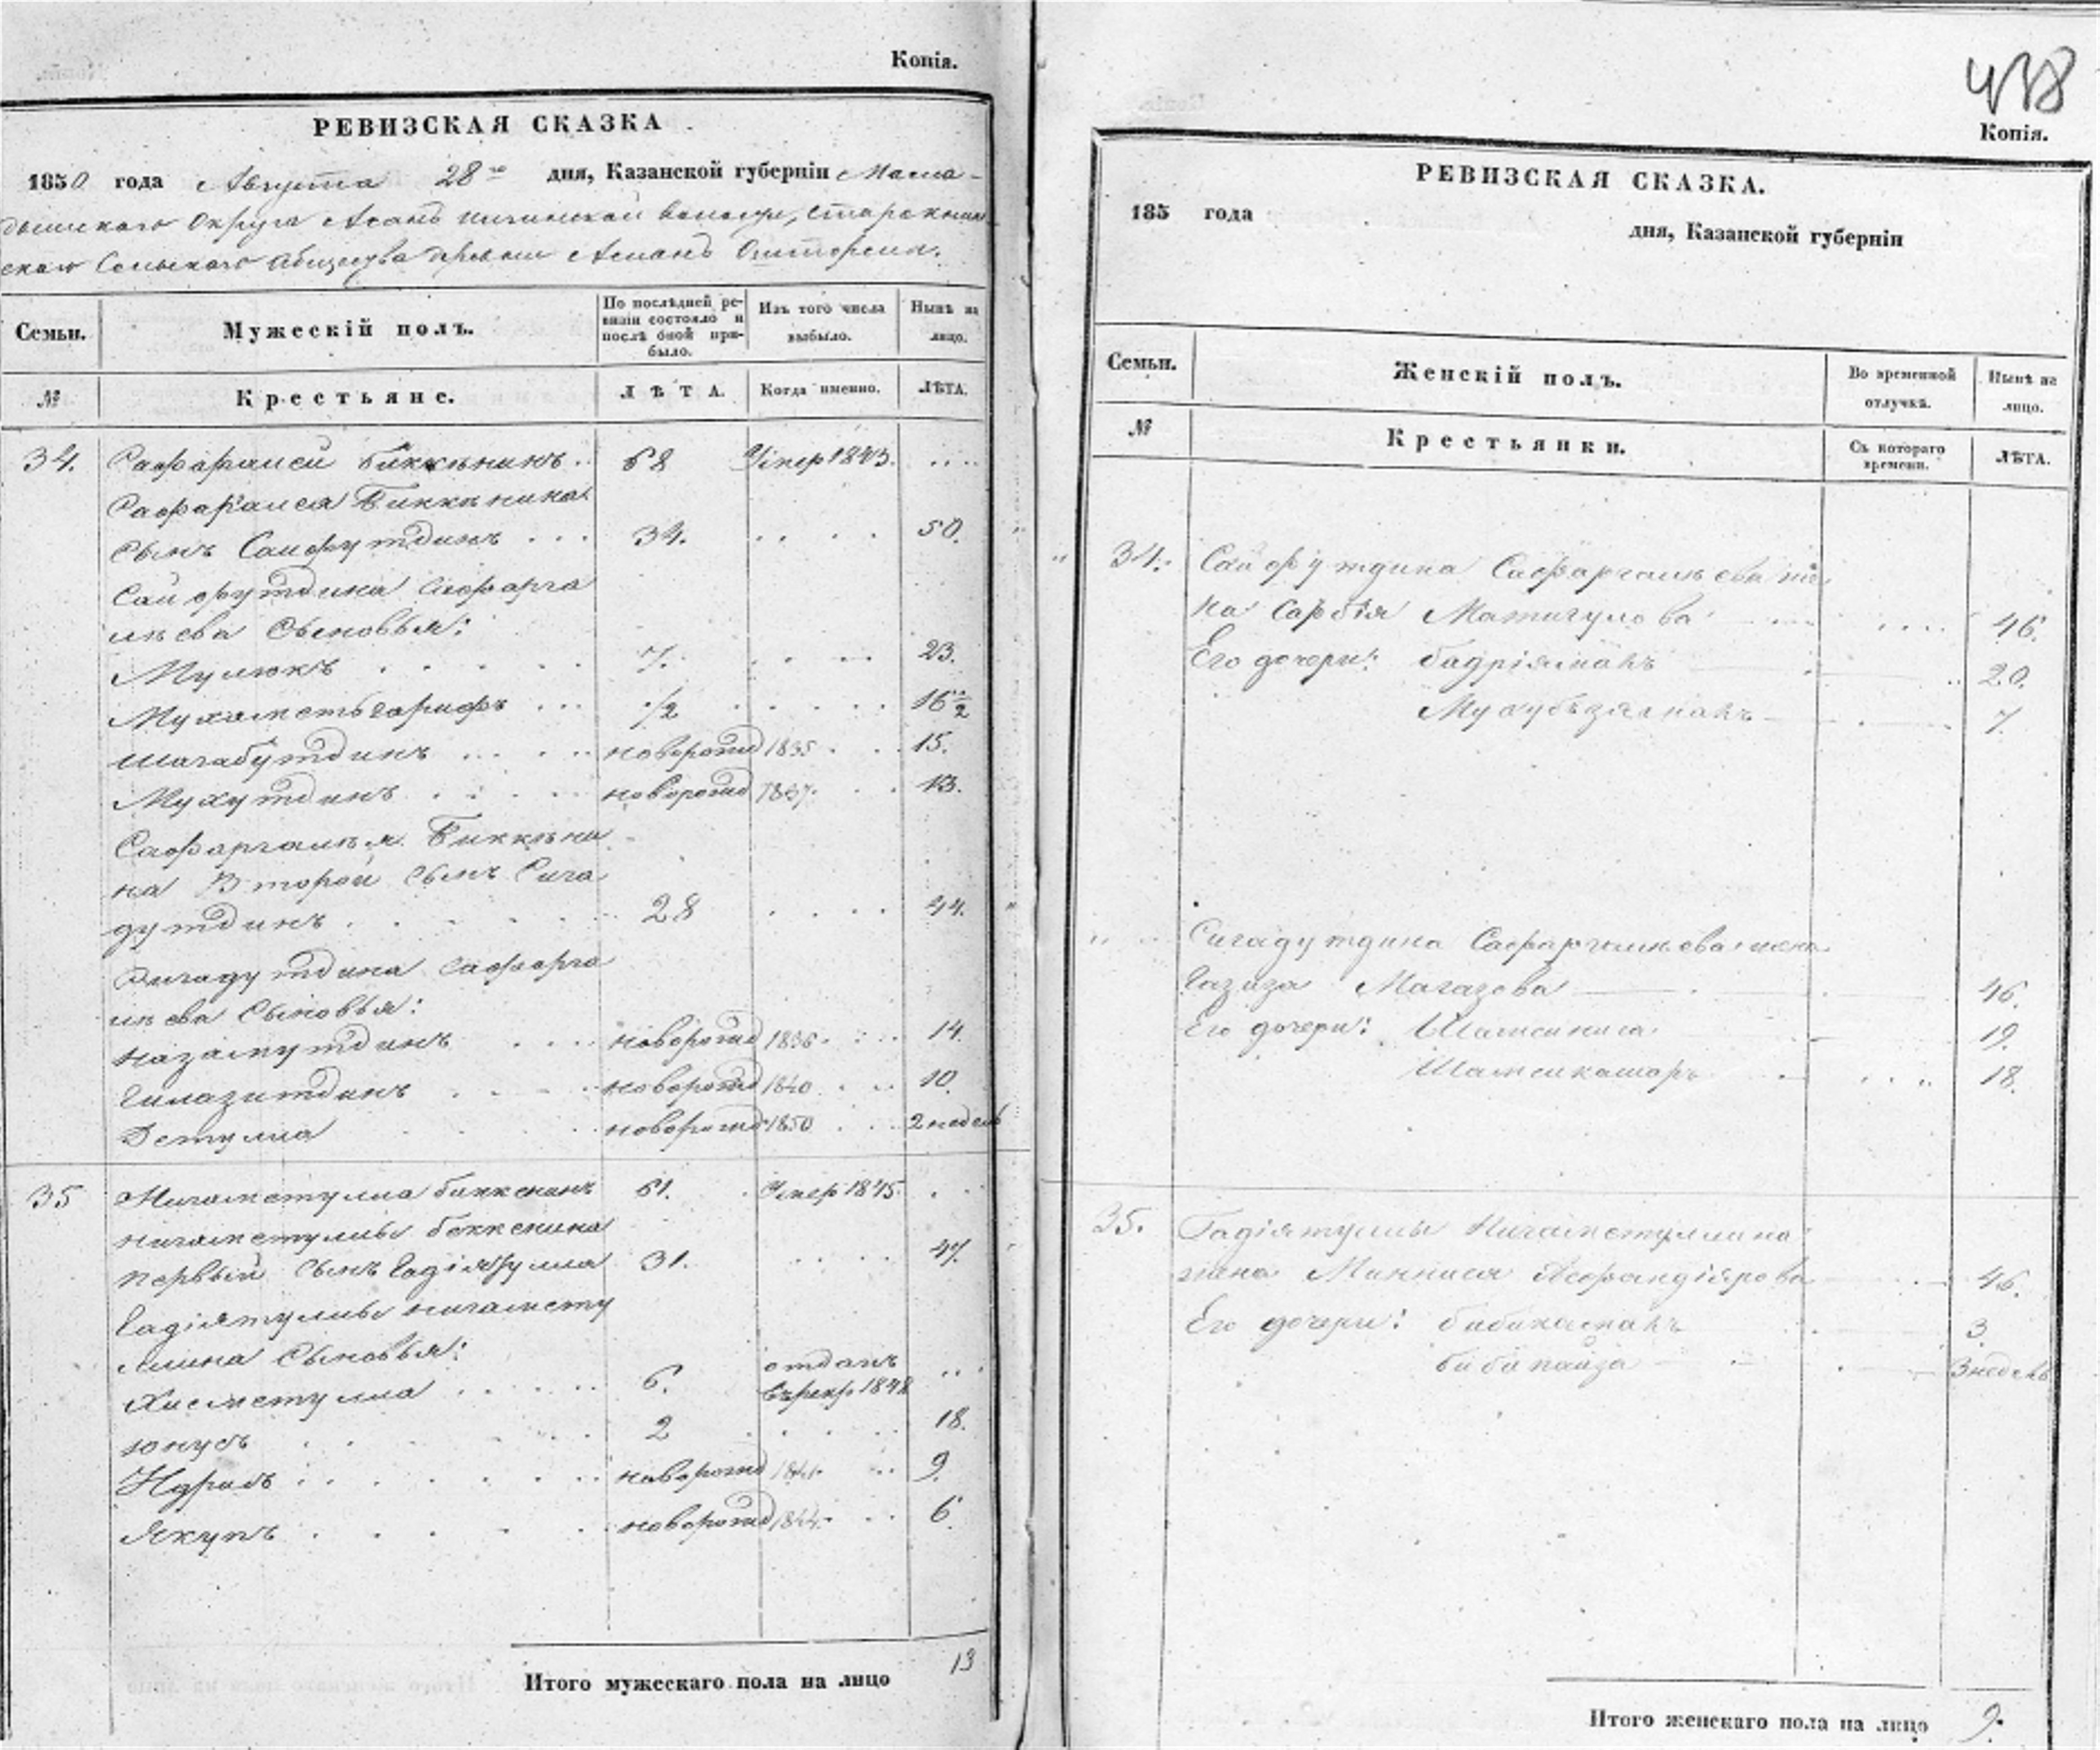 Копія.
РЕВИЗСКАЯ СКАЗКА
1850 года Августа 28го дня, Казанской губерніи Мама-
дышскаго Округа Асанъ
скаго Сельскаго Общества деревни
Семьи.
Мужескій полъ.
По послѣдней ре-
визіи состояло и
послѣ оной при-
было.
Изъ того числа
выбыло.
Нынѣ на
лицо.
№
Крестьяне.
ЛѢТА.
Когда именно.
ЛѢТА.
34. Сафаргалей Биккѣнинъ 68 Умер 1843.
Сафаргалея Биккѣнина
сынъ Сайфутдинъ 34. 50.
Сайфутдина Сафарга
лѣева сыновья:
Мулюкъ 7. 23.
Мухаметьгарифъ 1/2 16 1/2
Шагабутдинъ новорожд 1835 15.
Мухутдинъ новорожд 1837. 13.
Сафаргалѣя Биккѣни
на Второй сынъ Сига
дутдинъ 28 44.
Сигадутдина Сафарга
лѣева сыновья:
Назамутдинъ новорожд 1836. 14.
Гилазитдинъ новорожд 1840. 10.
новорожд 1850 2 недель
35 Нигаметулла Биккенинъ 61. Умер 1845.
Нигаметуллы Беккенина
первый сынъ Гадіятулла 31. 47.
Гадіятуллы Нигамету
ллина сыновья:
Хисметулла 6. отданъ
въ рекр. 1848
Юнусъ 2 18.
Идрисъ новорожд 1841. 9.
Якупъ новорожд 1844. 6.
Итого мужескаго пола на лицо 13
438
Копія.
РЕВИЗСКАЯ СКАЗКА.
185 года
дня, Казанской губерніи
Семьи.
Женскій полъ.
Во временной
отлучкѣ.
Нынѣ на
лицо.
№
Крестьянки.
Съ котораго
времени.
ЛѢТА.
34. Сайфутдина Сафаргалѣева же
на Сарбія Матигулова 46.
Его дочери: Бадріяманъ 20.
7.
Сигадутдина Сафаргалѣева жена
Газиза Магазова 46.
Его дочери: 19.
18.
35. Гадіятуллы Нигаметуллина
жена Минниса Асфандіярова 46.
Его дочери: Бибикаманъ 3
3 недель
Итого женскаго пола на лицо 9.